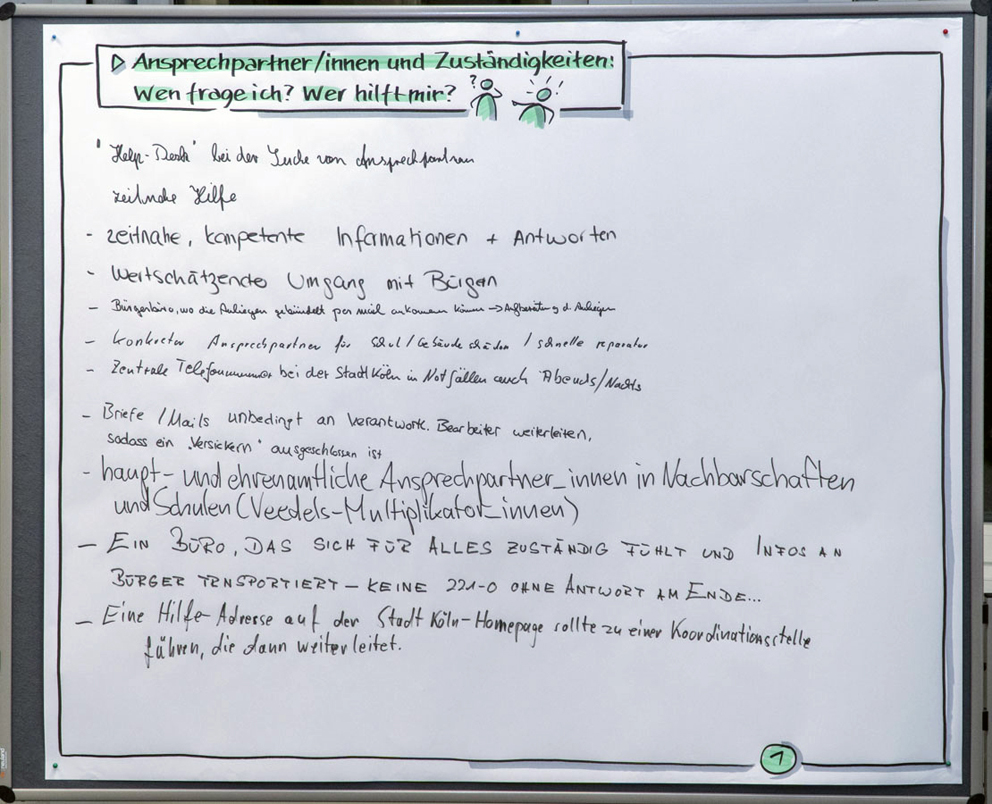 ▷ Ansprechpartner/innen und Zuständigkeiten:
Wen frage ich? Wer hilft mir?
"Help-Desk" bei der Suche von Ansprechpartnern
zeitnahe Hilfe
- zeitnahe, kompetente Informationen + Antworten
- Wertschätzender Umgang mit Bürgern
- Bürgerbüro, wo die Anliegen gebündelt per mail ankommen können → Aufbereitung d. Anliegen
- konkreter Ansprechpartner für Schul/Gebäude schäden / schnelle reparatur
- Zentrale Telefonnummer bei der Stadt Köln in Notfällen auch Abends/Nachts
- Briefe/Mails unbedingt an verantwork. Bearbeiter weiterleiten,
sodass ein "Versickern" ausgeschlossen ist
- haupt- und ehrenamtliche Ansprechpartner_innen in Nachbarschaften
und Schulen (Veedels-Multiplikator_innen)
- EIN BÜRO, DAS SICH FÜR ALLES ZUSTÄNDIG FÜHLT UND INFOS AN
BÜRGER TRNSPORTIERT - KEINE 221-0 OHNE ANTWORT AM ENDE...
- Eine Hilfe-Adresse auf der Stadt Köln-Homepage sollte zu einer Koordinationsstelle
führen, die dann weiterleitet.
1